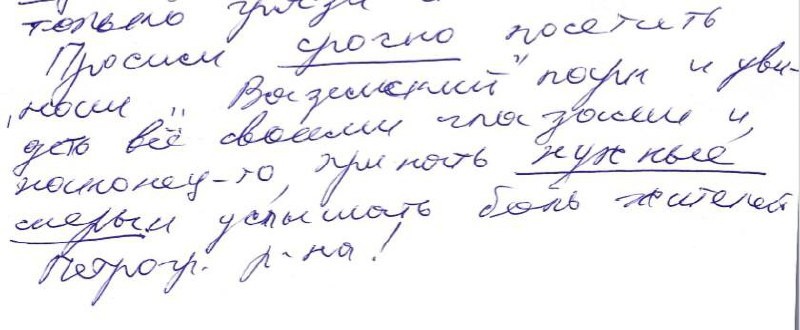 только грязи
Просим срочно посетить
„наш „Вяземский" парк и уви-
деть всё своими глазами и,
наконец-то, принять нужные
меры и услышать боль жителей
Петрогр. р-на!